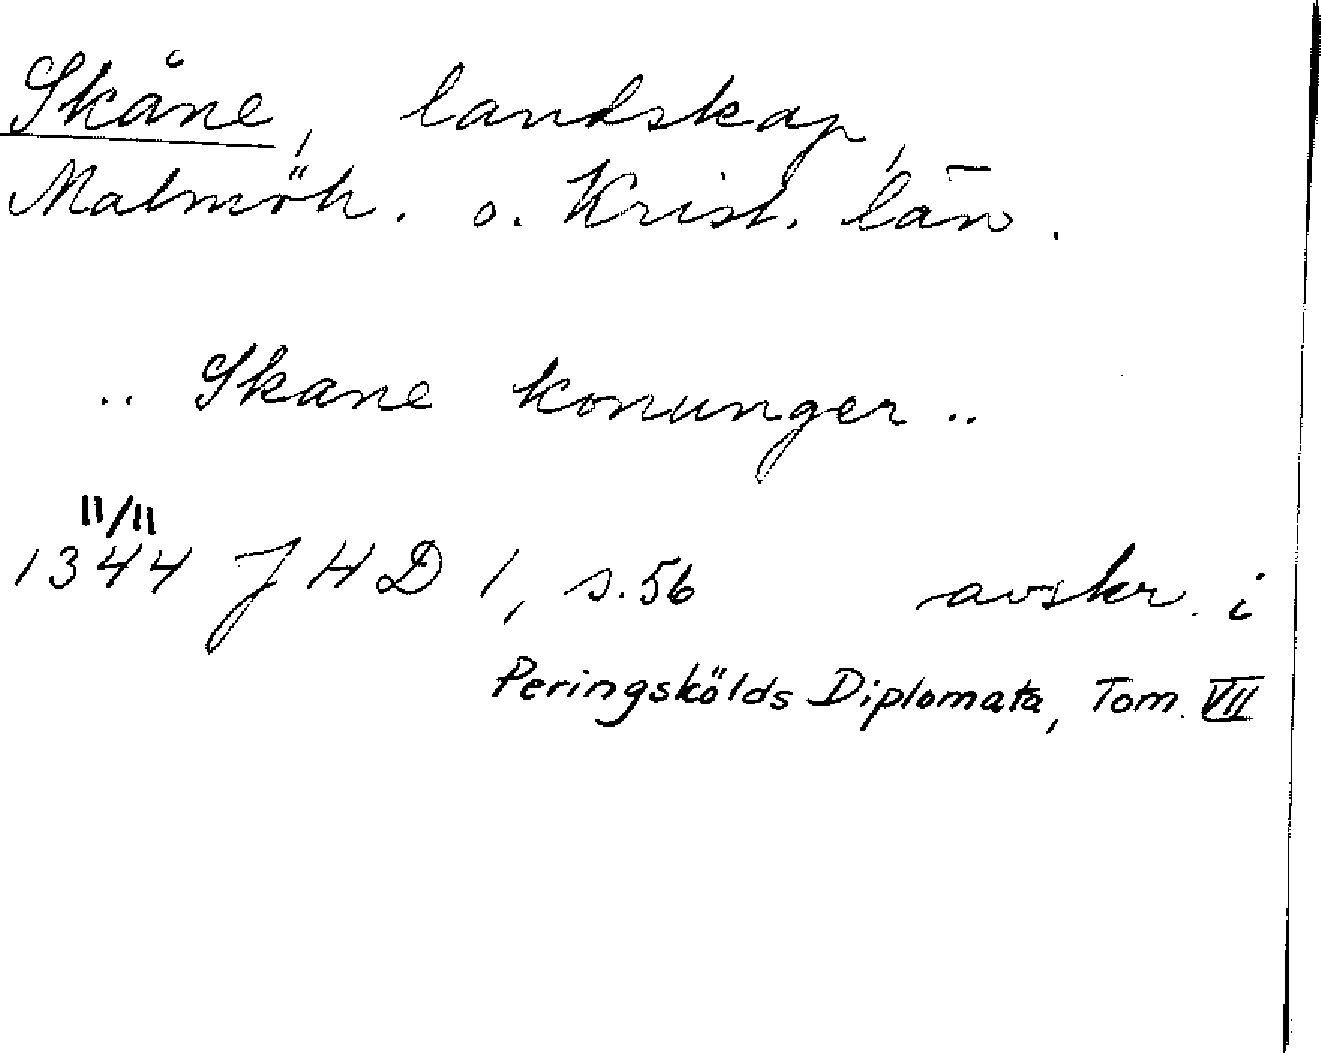 Skåne, landskap,
Malmöh. o. Krist. län.
.. Skane konunger ..
11/11
1344 J H D 1, s. 56 avskr. i
Peringskölds Diplomata, Tom. VII